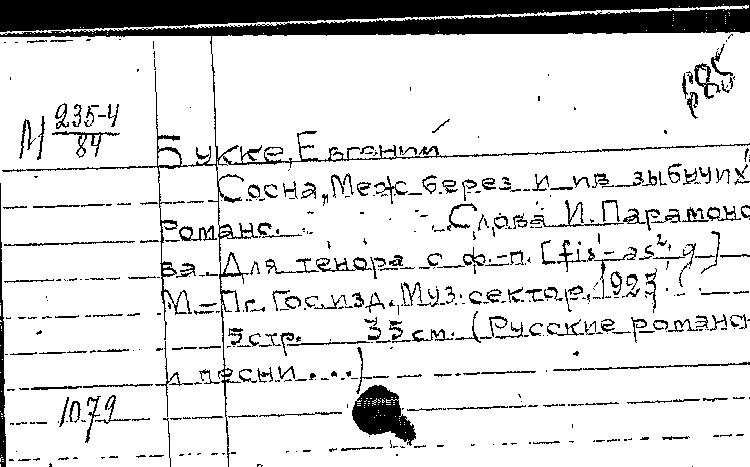 685
М 235-4
84
Букке, Евгений
Сосна, Меж берез и ив зыбучих
Романс. Слова И. Парамоно
ва. Для тенора с ф.-п. [fis¹-as²; g]
М.-Пг. Госизд. Муз. сектор, 1923
5стр. 35см. (Русские романсы
и песни...)
1079